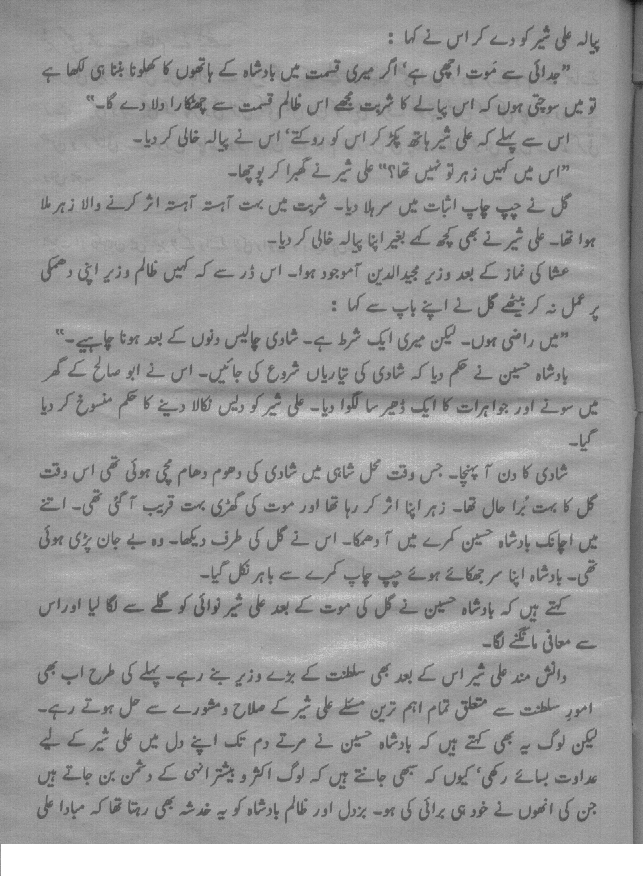 پیالہ علی شیر کو دے کر اس نے کہا :
”جدائی سے مَوت اچھی ہے‘ اگر میری قسمت میں بادشاہ کے ہاتھوں کا کھلونا بننا ہی لکھا ہے
تو میں سوچتی ہوں کہ اس پیالے کا شربت مجھے اس ظالم قسمت سے چھٹکارا دلا دے گا۔“
اس سے پہلے کہ علی شیر ہاتھ پکڑ کر اس کو روکتے‘ اس نے پیالہ خالی کر دیا۔
”اس میں کہیں زہر تو نہیں تھا؟“ علی شیر نے گھبرا کر پوچھا۔
گل نے چپ چاپ اثبات میں سر ہلا دیا۔ شربت میں بہت آہستہ آہستہ اثر کرنے والا زہر ملا
ہوا تھا۔ علی شیر نے بھی کچھ کہے بغیر اپنا پیالہ خالی کر دیا۔
عشا کی نماز کے بعد وزیر مجیدالدین آموجود ہوا۔ اس ڈر سے کہ کہیں ظالم وزیر اپنی دھمکی
پر عمل نہ کر بیٹھے گل نے اپنے باپ سے کہا :
”میں راضی ہوں۔ لیکن میری ایک شرط ہے۔ شادی چالیس دنوں کے بعد ہونا چاہیے۔“
بادشاہ حسین نے حکم دیا کہ شادی کی تیاریاں شروع کی جائیں۔ اس نے ابو صالح کے گھر
میں سونے اور جواہرات کا ایک ڈھیر سا لگوا دیا۔ علی شیر کو دیس نکالا دینے کا حکم منسوخ کر دیا
گیا۔
شادی کا دن آ پہنچا۔ جس وقت محل شاہی میں شادی کی دھوم دھام مچی ہوئی تھی اس وقت
گل کا بہت بُرا حال تھا۔ زہر اپنا اثر کر رہا تھا اور موت کی گھڑی بہت قریب آ گئی تھی۔ اتنے
میں اچانک بادشاہ حسین کمرے میں آ دھمکا۔ اس نے گل کی طرف دیکھا۔ وہ بے جان پڑی ہوئی
تھی۔ بادشاہ اپنا سر جھکائے ہوئے چپ چاپ کمرے سے باہر نکل گیا۔
کہتے ہیں کہ بادشاہ حسین نے گل کی موت کے بعد علی شیر نوائی کو گلے سے لگا لیا اور اس
سے معافی مانگنے لگا۔
دانش مند علی شیر اس کے بعد بھی سلطنت کے بڑے وزیر بنے رہے۔ پہلے کی طرح اب بھی
امورِ سلطنت سے متعلق تمام اہم ترین مسئلے علی شیر کے صلاح و مشورے سے حل ہوتے رہے۔
لیکن لوگ یہ بھی کہتے ہیں کہ بادشاہ حسین نے مرتے دم تک اپنے دل میں علی شیر کے لیے
عداوت بسائے رکھی‘ کیوں کہ سبھی جانتے ہیں کہ لوگ اکثر و بیشتر انہی کے دشمن بن جاتے ہیں
جن کی انھوں نے خود ہی برائی کی ہو۔ بزدل اور ظالم بادشاہ کو یہ خدشہ بھی رہتا تھا کہ مبادا علی